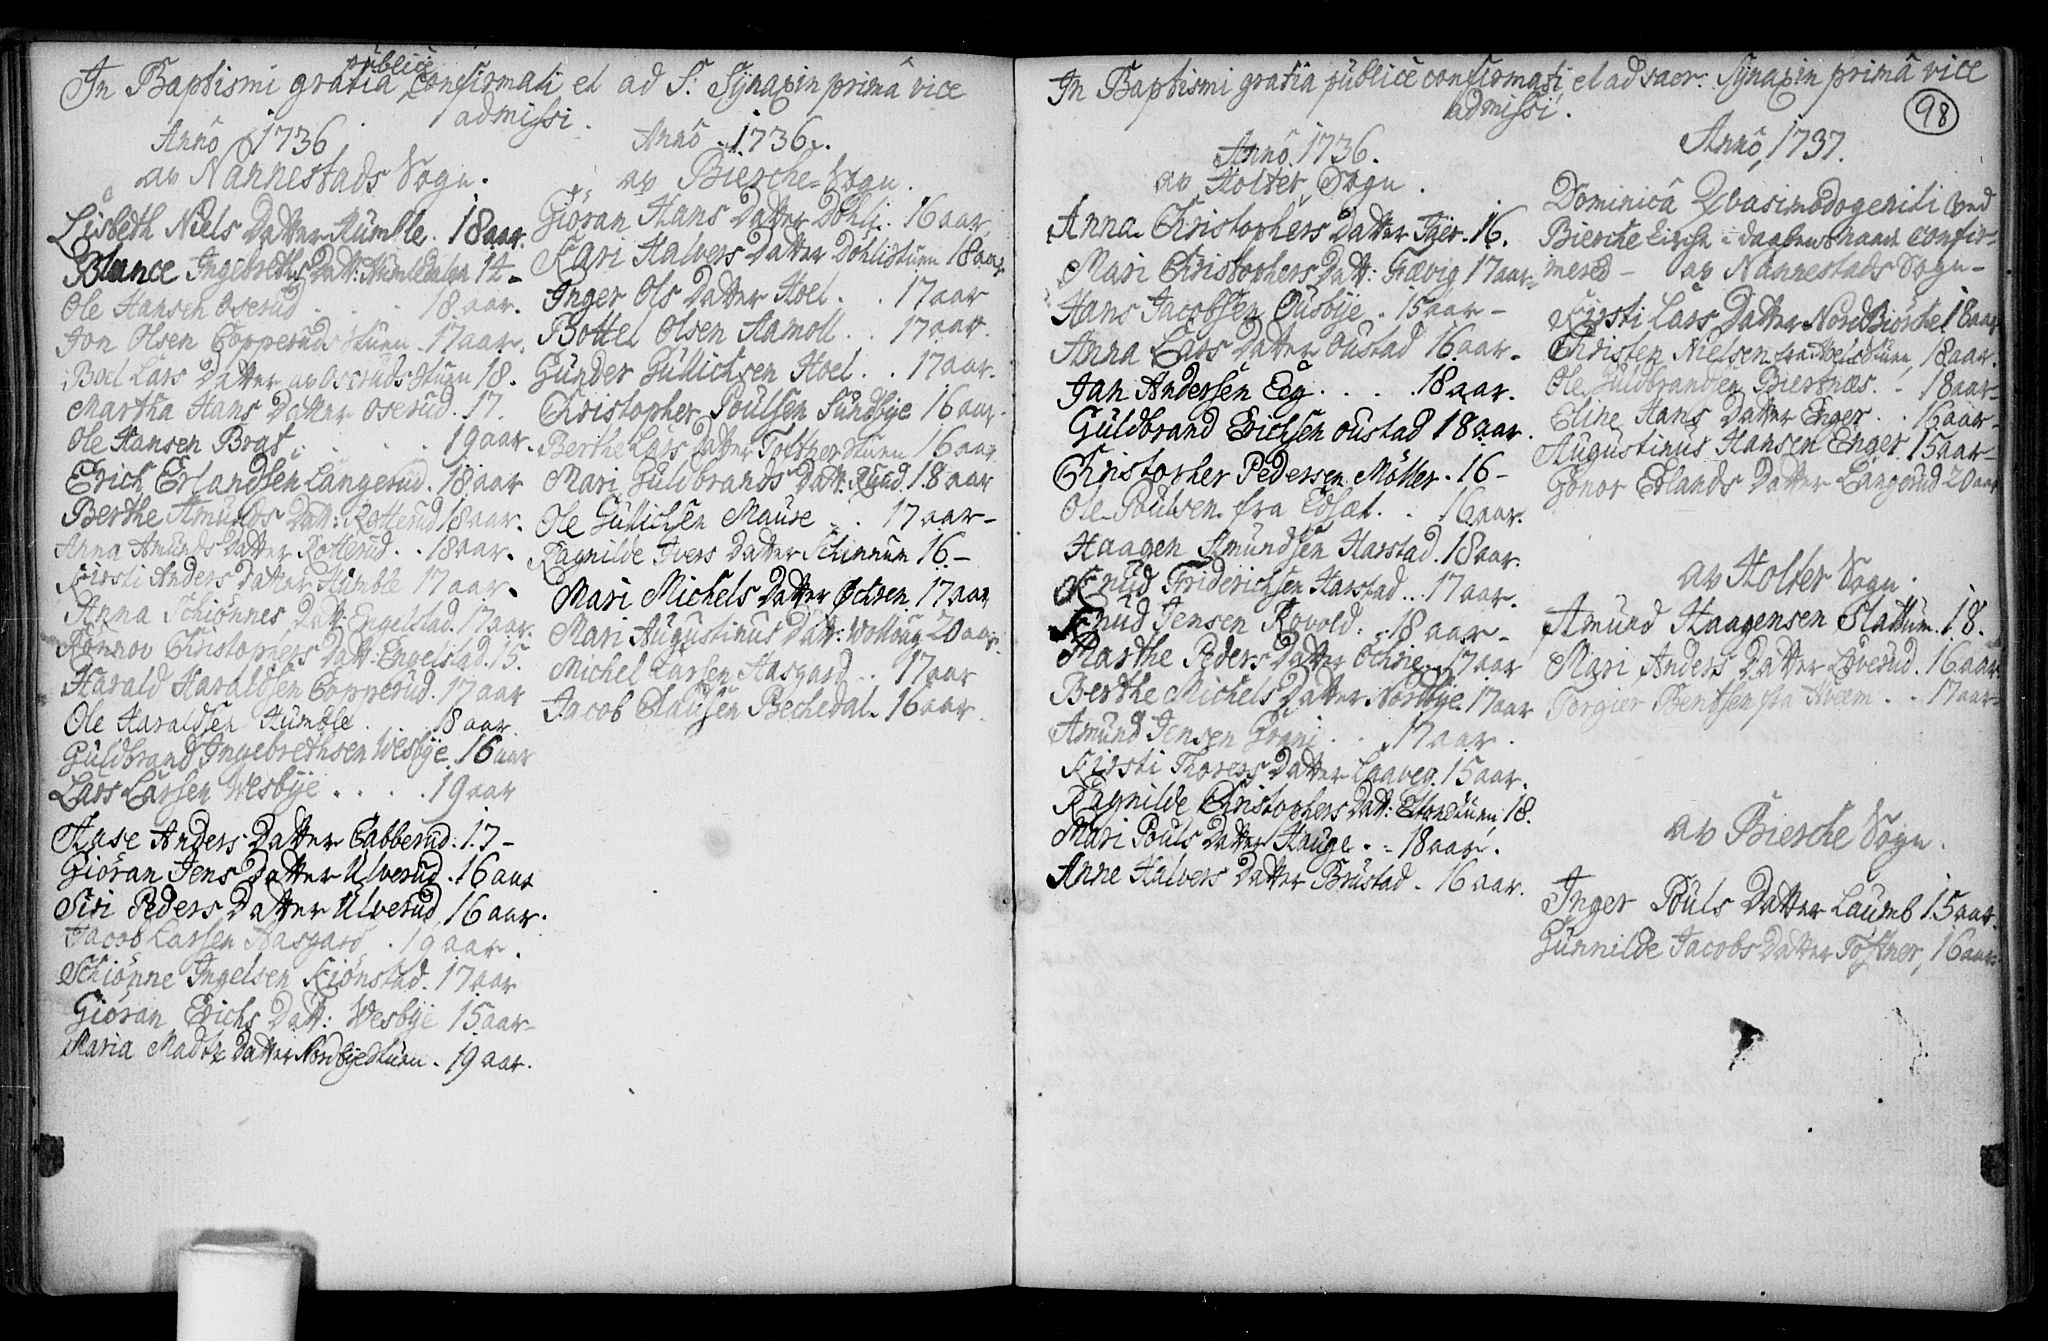 In Baptismi gratia publice confirmati et ad S. Synaxin primâ vice
admissi.
Annô 1736
av Nannestads Sogn.
Lisbeth Niels Datter Humble. 18 aar.
Blance Ingebreths Datt: Humledalen 14 -
Ole Hansen Oserud . . . 18. aar.
Jon Olsen Copperudstuen. 17 aar.
Boel Lars Datter av Oserudsstuen 18.
Martha Hans Datter Oserud. 17.
Ole Hansen . . . 19 aar.
Erich Erlandsen Langerud. 18 aar
Berthe Amunds Datt: Rotterud 18 aar.
Anna Amunds Datter Rotterud . . 18 aar.
Kirsti Anders Datter Humble 17 aar.
Anna Schiönnes Datt: Engelstad. 17 aar.
Rönnov Christophers Datt. Engelstad. 15.
Harald Haraldsen Copperud. 17 aar
Ole Haraldsen Humble . . 18 aar.
Guldbrand Ingebrethsen Wesbÿe. 16 aar
Lars Larsen Wesbÿe . . . . . 19 aar
Aase Anders Datter Cabberud: 17 -
Giöran Jens Datter Ulverud. 16 aar
Siri Peders Datter Ulverud 16 aar.
Jacob Larsen Aasgard . 19 aar.
Schiönne Ingelsen Kiönstad. 17 aar
Giöran Erichs Datt: Wesbÿe 15 aar -
Maria Madtz Datter Nordbÿestuen. 19 aar.
Annô 1736.
av Bierche Sogn.
Giöran Hans Datter Dohli. 16 aar.
Kari Halvers Datter Dohlistuen 18 aar
Inger Ols Datter Hoel . . 17 aar
Bottel Olsen Aamoll . . 17 aar.
Gunder Gullichsen Hoel . . 17 aar.
Christopher Poulsen Sundbÿe 16 aar.
Berthe Lars Datter 16 aar
Mari Guldbrands Datt: Ruud. 18 aar
Ole Gullichsen Maure . . 17 aar -
Ragnilde Ivers Datter 16 -
Mari Michels Datter Ochren. 17 aar
Mari Augustinus Datt: 20 aar.
Michel Larsen Aasgard . . 17 aar
Jacob Clausen Bechedal. 16 aar.
In Baptismi gratia publice confirmati, et ad sacr: Synaxin primâ vice
admissi.
98
Annô. 1736.
av Holter Sogn.
Anna Christophers Datter Tÿer. 16.
Mari Christophers Datt: 17 aar -
Hans Jacobsen Ousbÿe . 15 aar -
Anna Lars Datter Oustad 16 aar -
Jan Andersen Eeg . . . . 18 aar.
Guldbrand Erichsen Oustad 18 aar.
Christopher Pedersen Möller. 16 -
Ole Poulsen fra . . 16 aar.
Haagen Amundsen Harstad. 18 aar.
Knud Friderichsen Harstad . . 17 aar.
Knud Jensen Rovold . . 18 aar -
Marthe Peders Datter 17 aar
Berthe Michels Datter Nordbÿe. 17 aar
Amund Jensen . . . 17 aar.
Kirsti Thorers Datter Laaveg. 15 aar.
Ragnilde Christophers Datt: 18.
Mari Pouls Datter Hauge . . 18 aar.
Anne Halvers Datter Brustad. 16 aar.
Annô, 1737.
Dominicâ Qvasimodogeniti ved
Bierche kirche i daabens naade confir-
mered - av Nannestads Sogn -
Kirsti Lars Datter Nord Biörche 18 aar
Christen Nielsen fra 18 aar.
Ole Guldbrandsen Biertnæs . . 18 aar -
Eline Hans Datter Enger . 16 aar -
Augustinus Hansen Enger. 15 aar -
Gonor Erlands Datter Langerud 20 aar
av Holter Sogn.
Amund Haagensen Slattum. 18.
Mari Anders Datter Löverud. 16 aar
Torgier Bentsen fra . . 17 aar -
av Bierche Sogn.
Inger Pouls Datter Laumb 15 aar.
Gunnilde Jacobs Datter Töftner, 16 aar.